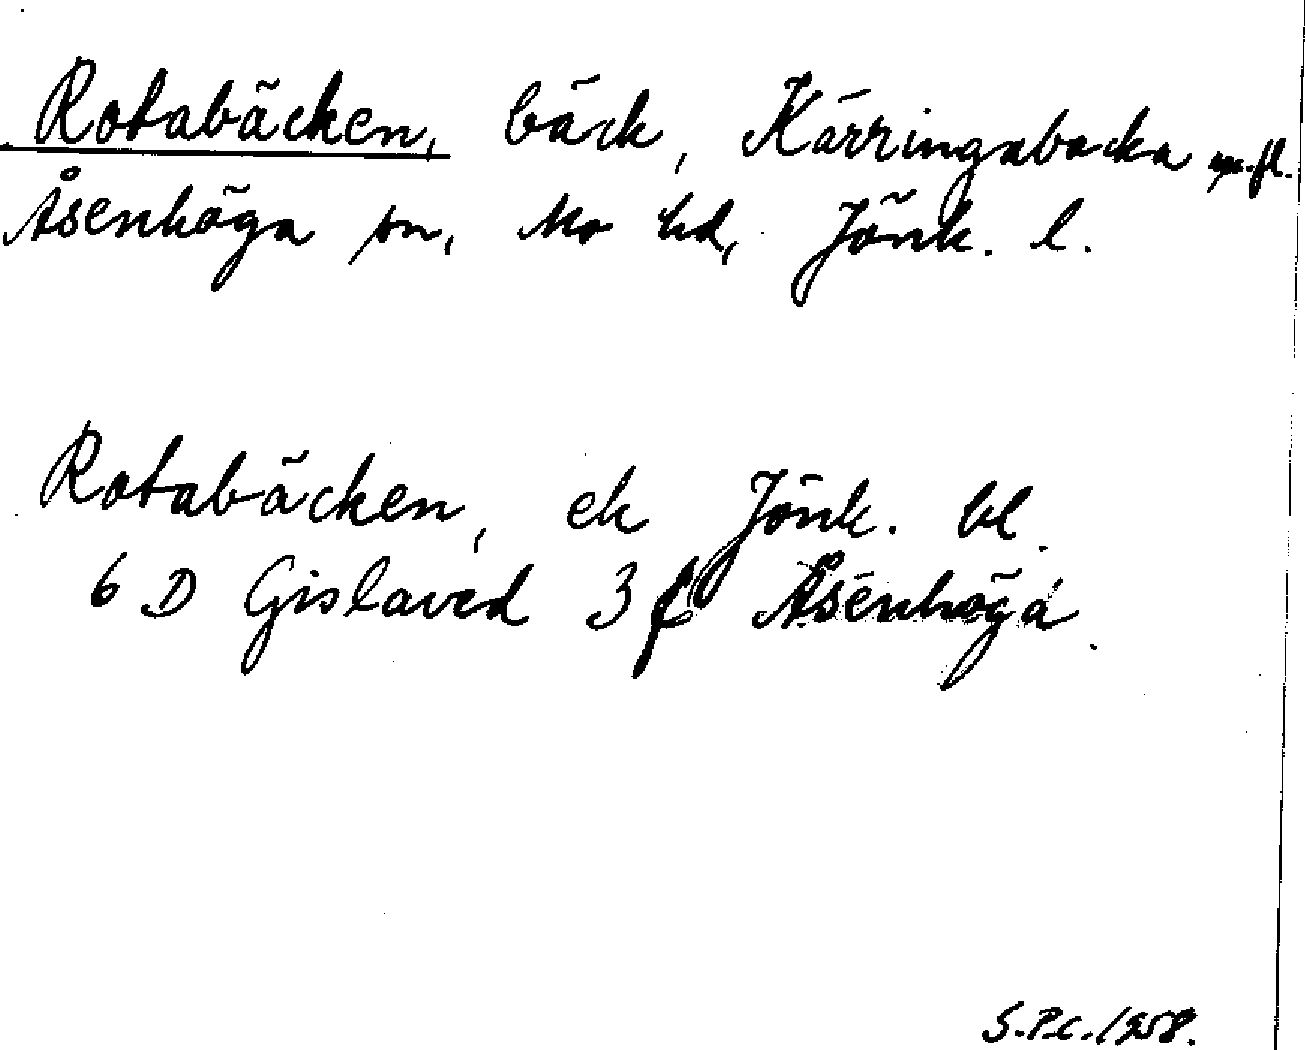 Rotabäcken, bäck, Kärringabacka m. fl.
Åsenhöga sn, Mo hd, Jönk. l.
Rotabäcken, ek Jönk. bl.
6 D Gislaved 3 f Åsenhöga.
S.P.C. 1958.